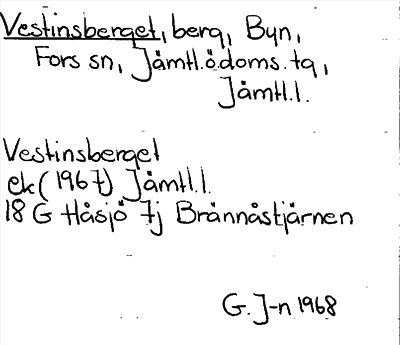 Vestinsberget, berg, Byn,
Fors sn, Jämtl.ö.doms.tg,
Jämtl.l.
Vestinsberget
ek (1967) Jämtl.l.
18 G Håsjö 7j Brännåstjärnen
G. J-n 1968